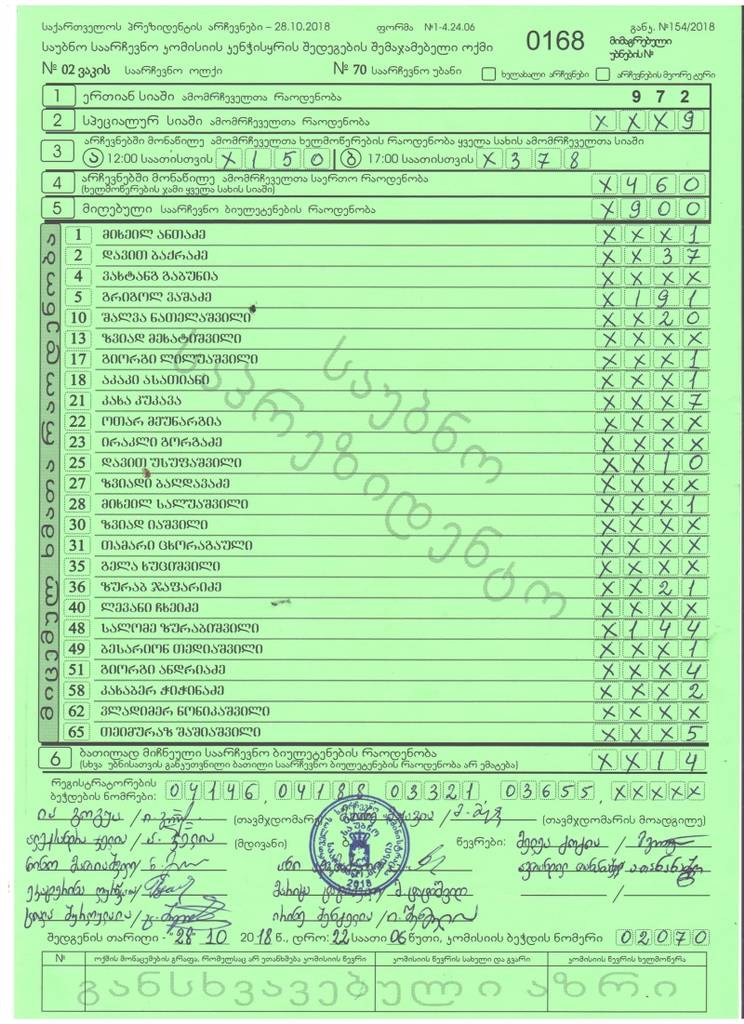 საქართველოს პრეზიდენტის არჩევნები – 28.10.2018 ფორმა №1-4.24.06 განკ. №154/2018
საუბნო საარჩევნო კომისიის კენჭისყრის შედეგების შემაჯამებელი ოქმი 0168 მიმაგრებული უბნების №
№ 02 ვაკის საარჩევნო ოლქი № 70 საარჩევნო უბანი ხელახალი არჩევნები არჩევნების მეორე ტური
1 ერთიან სიაში ამომრჩეველთა რაოდენობა 972
2 სპეციალურ სიაში ამომრჩეველთა რაოდენობა XXX9
3 არჩევნებში მონაწილე ამომრჩეველთა ხელმოწერების რაოდენობა ყველა სახის ამომრჩეველთა სიაში
ა 12:00 საათისთვის X150 ბ 17:00 საათისთვის X378
4 არჩევნებში მონაწილე ამომრჩეველთა საერთო რაოდენობა X460
(ხელმოწერების ჯამი ყველა სახის სიაში)
5 მიღებული საარჩევნო ბიულეტენების რაოდენობა X900
მიცემულ ხმათა რაოდენობა
1 მიხეილ ანთაძე XXX1
2 დავით ბაქრაძე XX37
4 ვახტანგ გაბუნია XXXX
5 გრიგოლ ვაშაძე X191
10 შალვა ნათელაშვილი XX20
13 ზვიად მეხატიშვილი XXXX
17 გიორგი ლილუაშვილი XXX1
18 აკაკი ასათიანი XXX1
21 კახა კუკავა XXX7
22 ოთარ მეუნარგია XXXX
23 ირაკლი გორგაძე XXXX
25 დავით უსუფაშვილი XX10
27 ზვიადი ბაღდავაძე XXXX
28 მიხეილ სალუაშვილი XXX1
30 ზვიად იაშვილი XXXX
31 თამარი ცხორაგაული XXXX
35 გელა ხუციშვილი XXXX
36 ზურაბ ჯაფარიძე XX21
40 ლევანი ჩხეიძე XXXX
48 სალომე ზურაბიშვილი X144
49 ბესარიონ თედიაშვილი XXX1
51 გიორგი ანდრიაძე XXX4
58 კახაბერ ჭიჭინაძე XXX2
62 ვლადიმერ ნონიკაშვილი XXXX
65 თეიმურაზ შაშიაშვილი XXX5
საუბნო
საპრეზიდენტო
6 ბათილად მიჩნეული საარჩევნო ბიულეტენების რაოდენობა XX14
(სხვა უბნისათვის განკუთვნილი ბათილი საარჩევნო ბიულეტენების რაოდენობა არ ემატება)
რეგისტრატორების
ბეჭდების ნომრები: 04146, 04188, 03321, 03655, XXXXX
(თავმჯდომარე) (თავმჯდომარის მოადგილე)
(მდივანი) წევრები:
2018
შედგენის თარიღი - 28 10 2018 წ., დრო: 22 საათი 06 წუთი, კომისიის ბეჭდის ნომერი 02070
№ ოქმის მონაცემების გრაფა, რომელსაც არ ეთანხმება კომისიის წევრი კომისიის წევრის სახელი და გვარი კომისიის წევრის ხელმოწერა
განსხვავებული აზრი